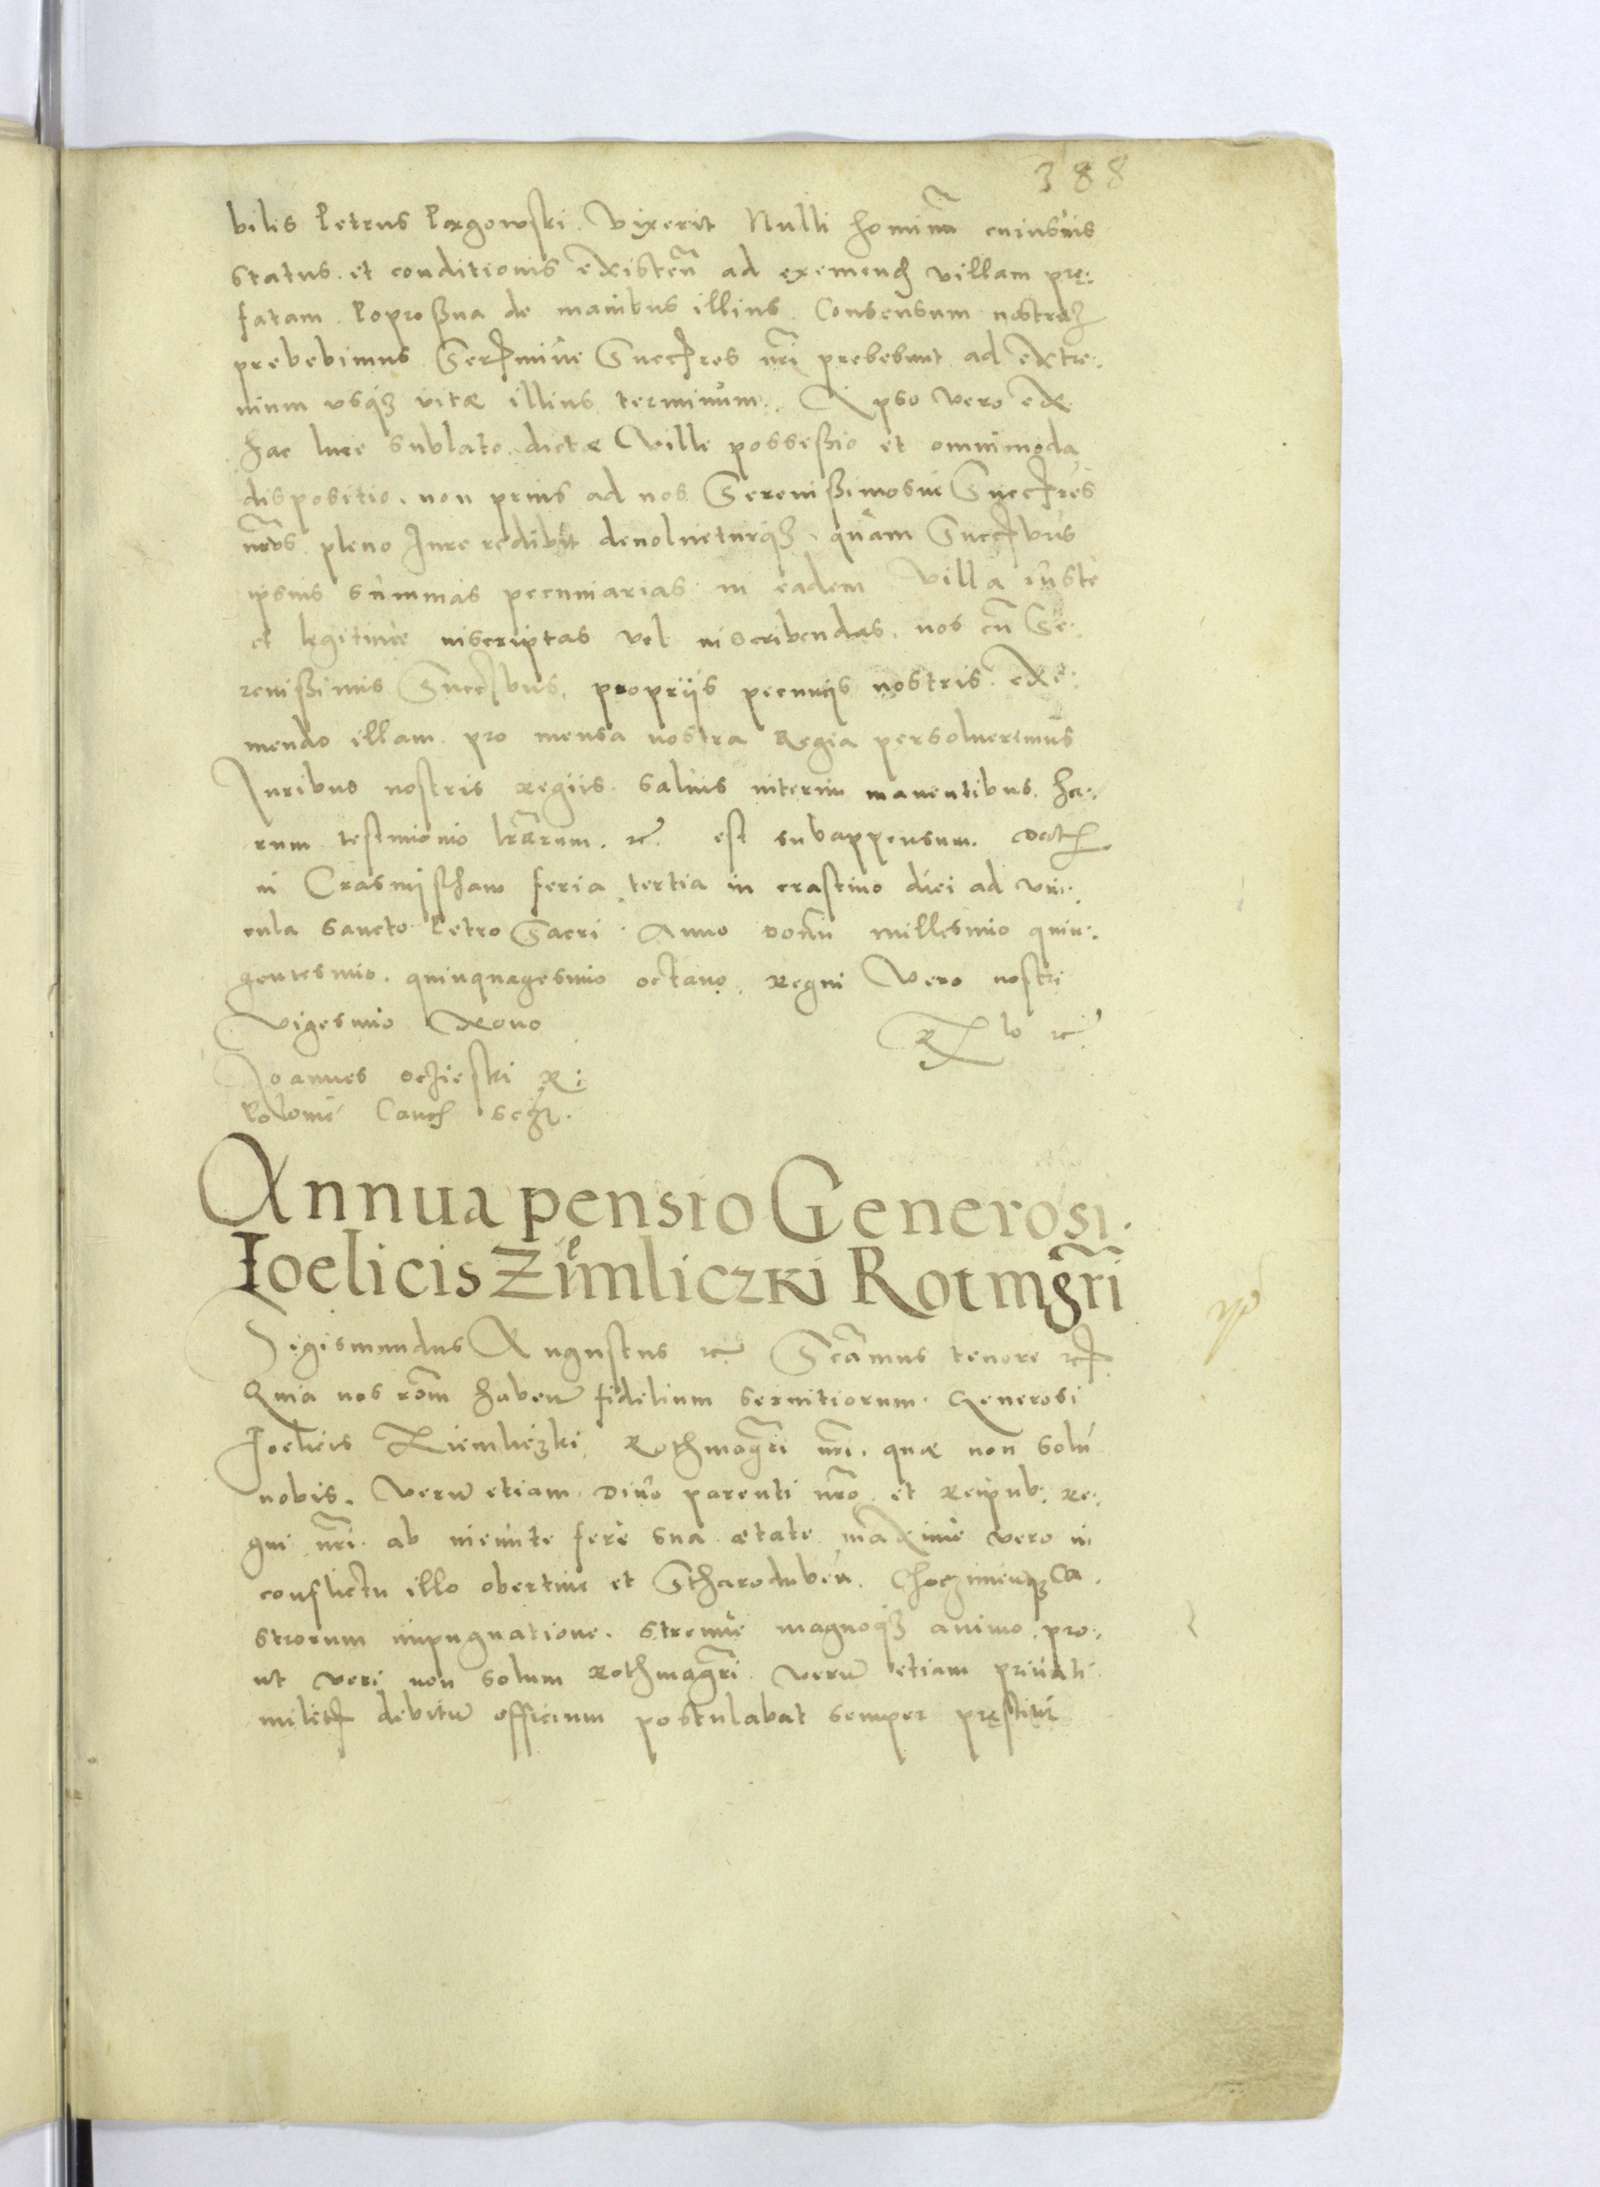 388
bilis Petrus Pargowski. Vixerit Nulli hominũ cuiusuis
status. et conditionis existeñ ad eximend villam prę:
fatam. Poproßna de manibus illius. Consensum nostrũ
prebebimus Serꝭmiue Succꝭres nr̃i prebebunt ad extre:
mum vsqꝫ vitæ illius terminum. Ipso vero ex
hac luce sublato. dictæ Ville possessio et omnimoda
dispositio, non prius ad nos Serenißimosue Succꝭres
nr̃os pleno Iure redibit deuolueturqꝫ, quàm Succꝭbus
ipsius summas pecuniarias in eadem Villa iuste
et legitime inscriptas vel inscribendas, nos cũ Se:
renißimis Succꝭbus, propriis pecuniis nostris exi:
mendo illam pro mensa nostra Regia persoluerimus
Iuribus nostris regiis. saluis interim manentibus. ha:
rum testimonio lr̃arum. etc. est subappensum. Dat
in Crasnijsthaw feria tertia in crastino diei ad vin:
cula sancto Petro Sacri. Anno Domi millesimo quin:
gentesimo. quinquagesimo octauo. regni Vero nostri
Vigesimo Nono
Rꝭ lo etc
Joannes Oczieski R:
Poloniæ Canc sczt.
Annua pensio Generosi.
Ioelicis Ziemliczki Rotmgr̃i
Sigismundus Augustus etc Sc̃amus tenore etc
Quia nos rõm habeñ fidelium seruitiorum. Generosi
Joelicis Ziemliczki Rothmagr̃i nr̃i. quæ non solũ
nobis. Verũ etiam Diuo parenti nr̃o et Reipub: Re:
gni nr̃i ab ineunte fere sua ætate maxime vero in
conflictu illo obertine et Stharoduben. Choczimenꝫ Ca.
strorum impugnatione. strenue magnoqꝫ animo. pro:
ut veri non solum Rothmagr̃i verũ etiam priuati
militꝭ debitũ officium postulabat semper pręstitit